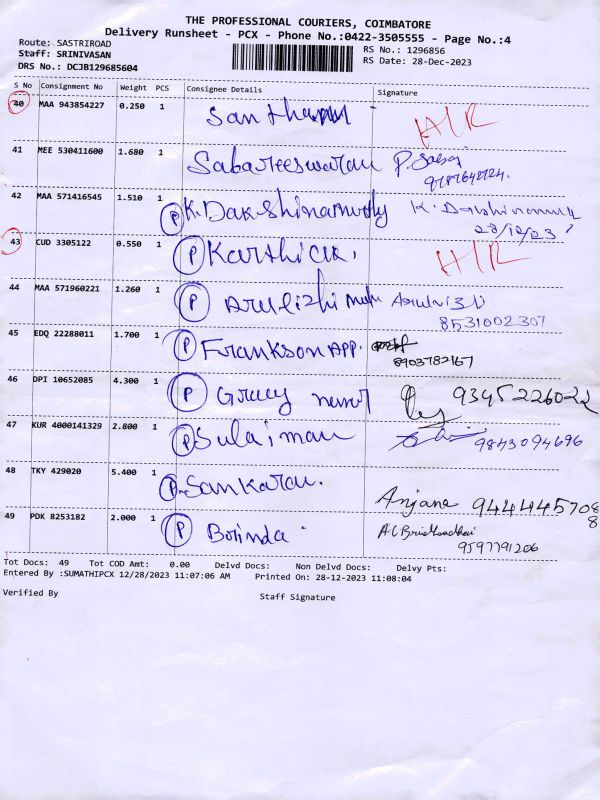 THE PROFESSIONAL COURIERS, COIMBATORE
Delivery Runsheet - PCX - Phone No.:0422-3505555 - Page No.:4
Route: SASTRIROAD
Staff: SRINIVASAN
DRS No.: DCJB129685604
RS No.: 1296856
RS Date: 28-Dec-2023
S No Consignment No Weight PCS Consignee Details Signature
40 MAA 943854227 0.250 1 H/R
41 MEE 530411600 1.680 1 Sabareeswaran P. Sabai
42 MAA 571416545 1.510 1 P K. Dakshinamurthy K. Dakshinamurthy
28/12/23
43 CUD 3305122 0.550 1 P Karthick. H/R
44 MAA 571960221 1.260 1 P
8531002307
45 EDQ 22288011 1.700 1 P Frankson APP.
8903782167
46 DPI 10652085 4.300 1 P 9345226022
47 KUR 4000141329 2.800 1 P Sulaiman 9843094696
48 TKY 429020 5.400 1 P Sankaran. Anjana 9444457088
49 PDK 8253182 2.000 1 P
9597791206
Tot Docs: 49 Tot COD Amt: 0.00 Delvd Docs: Non Delvd Docs: Delvy Pts:
Entered By :SUMATHIPCX 12/28/2023 11:07:06 AM Printed On: 28-12-2023 11:08:04
Verified By Staff Signature